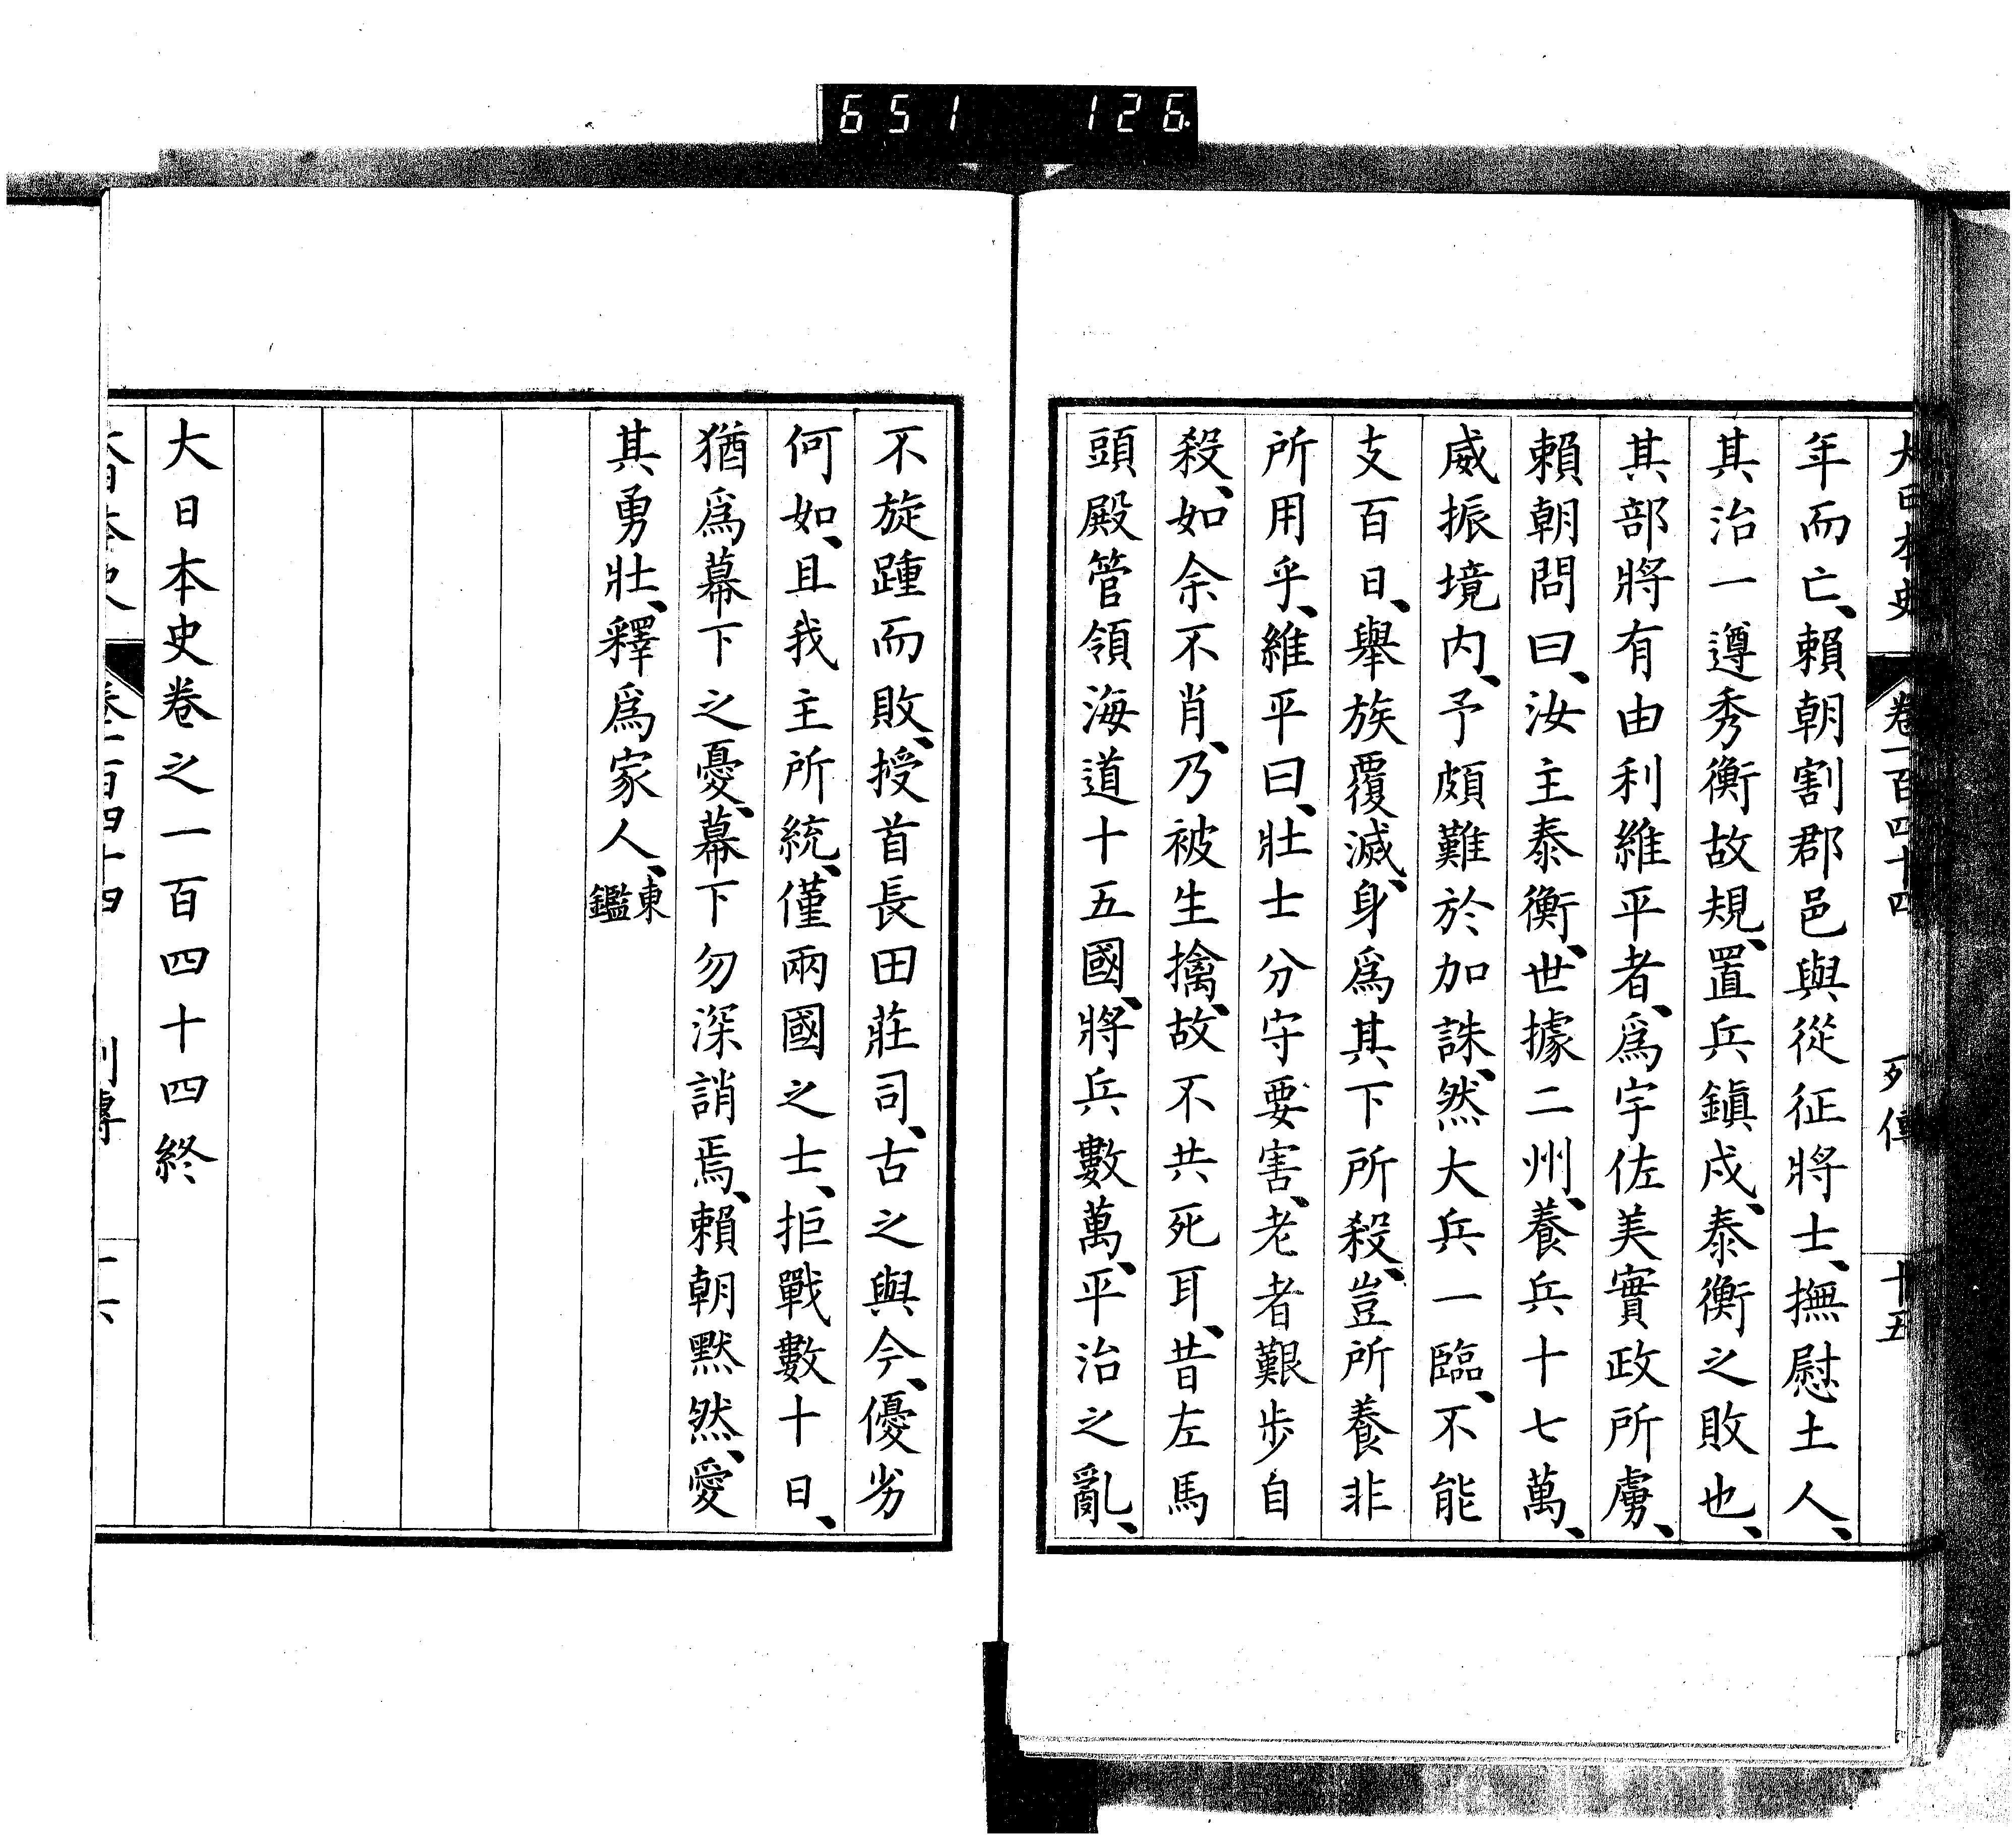 651 126
大日本史 卷一百四十四 列傳 十五
年而亡、賴朝割郡邑與從征將士、撫慰土人、
其治一遵秀衡故規、置兵鎭戍、泰衡之敗也、
其部將有由利維平者、爲宇佐美實政所虜、
賴朝問曰、汝主泰衡、世據二州、養兵十七萬、
威振境内、予頗難於加誅、然大兵一臨、不能
支百日、舉族覆滅、身爲其下所殺、豈所養非
所用乎、維平曰、壯士分守要害、老者艱步自
殺、如余不肖、乃被生擒、故不共死耳、昔左馬
頭殿管領海道十五國、將兵數萬、平治之亂、
不旋踵而敗、授首長田莊司、古之與今、優劣
何如、且我主所統、僅兩國之士、拒戰數十日、
猶爲幕下之憂、幕下勿深誚焉、賴朝默然、愛
其勇壯、釋爲家人、東鑑
大日本史卷之一百四十四終
大日本史 卷一百四十四 列傳 十六